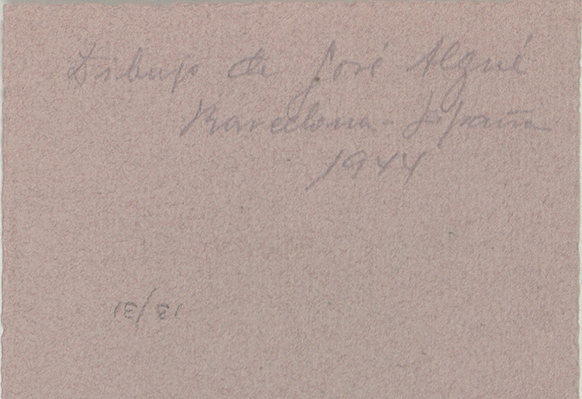 Dibujo de José Algué
Barcelona - España
1944
13/31